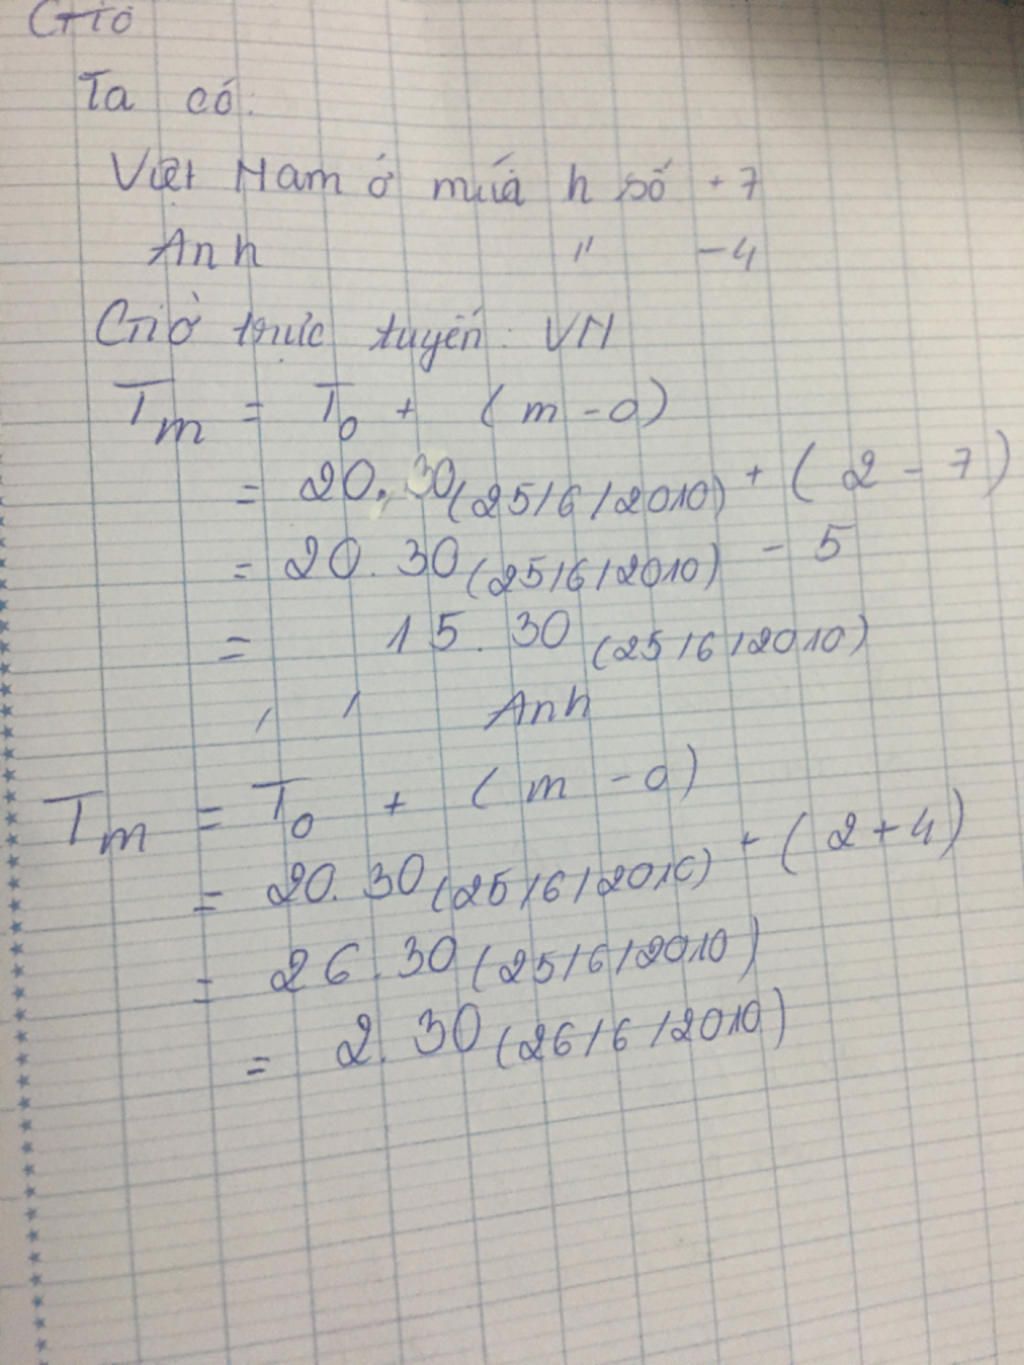 Giờ
Ta có:
Việt Nam ở múi h số +7
Anh " -4
Giờ trực tuyến: VN
Tm = To + (m - o)
= 20.30 (25/6/2010) + (2 - 7)
= 20.30 (25/6/2010) - 5
= 15.30 (25/6/2010)
, , Anh
Tm = To + (m - o)
= 20.30 (25/6/2010) + (2 + 4)
= 26.30 (25/6/2010)
= 2.30 (26/6/2010)